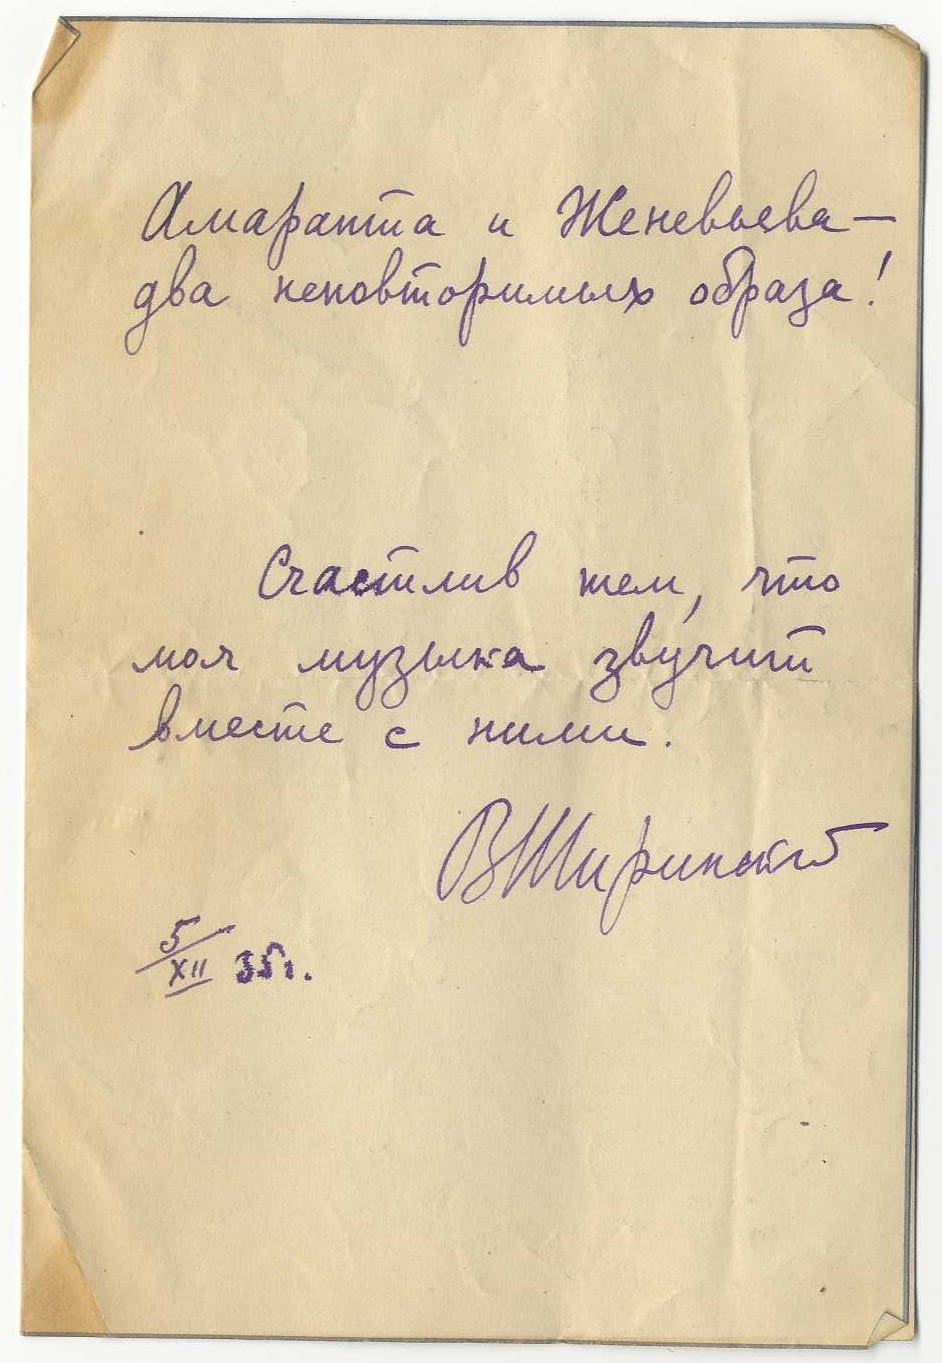 Амаранта и Женевьева —
два неповторимых образа!
Счастлив тем, что
моя музыка звучит
вместе с ними.
ВШиринский
5/XII 35г.